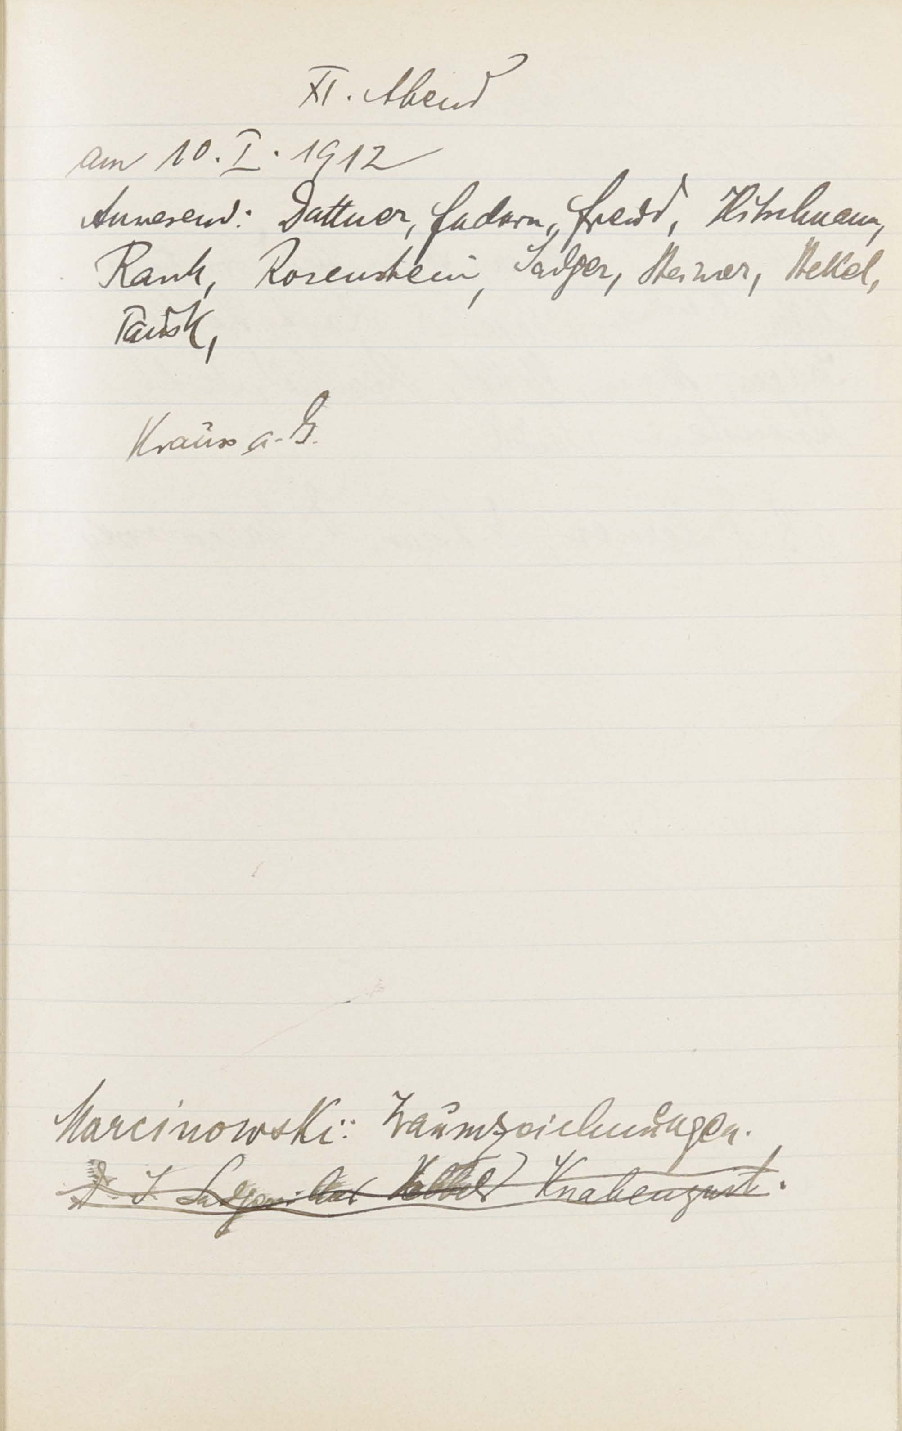 XI. Abend
am 10. I. 1912
Anwesend: Dattner, Federn, Freud, Hitschmann,
Rank, Rosenstein, Sadger, Steiner, Stekel,
Tausk,
Krauss a. G.
Marcinowski: Traumzeichnungen.
Dr. J. Sadger: Aus Hebbels Knabenzeit.